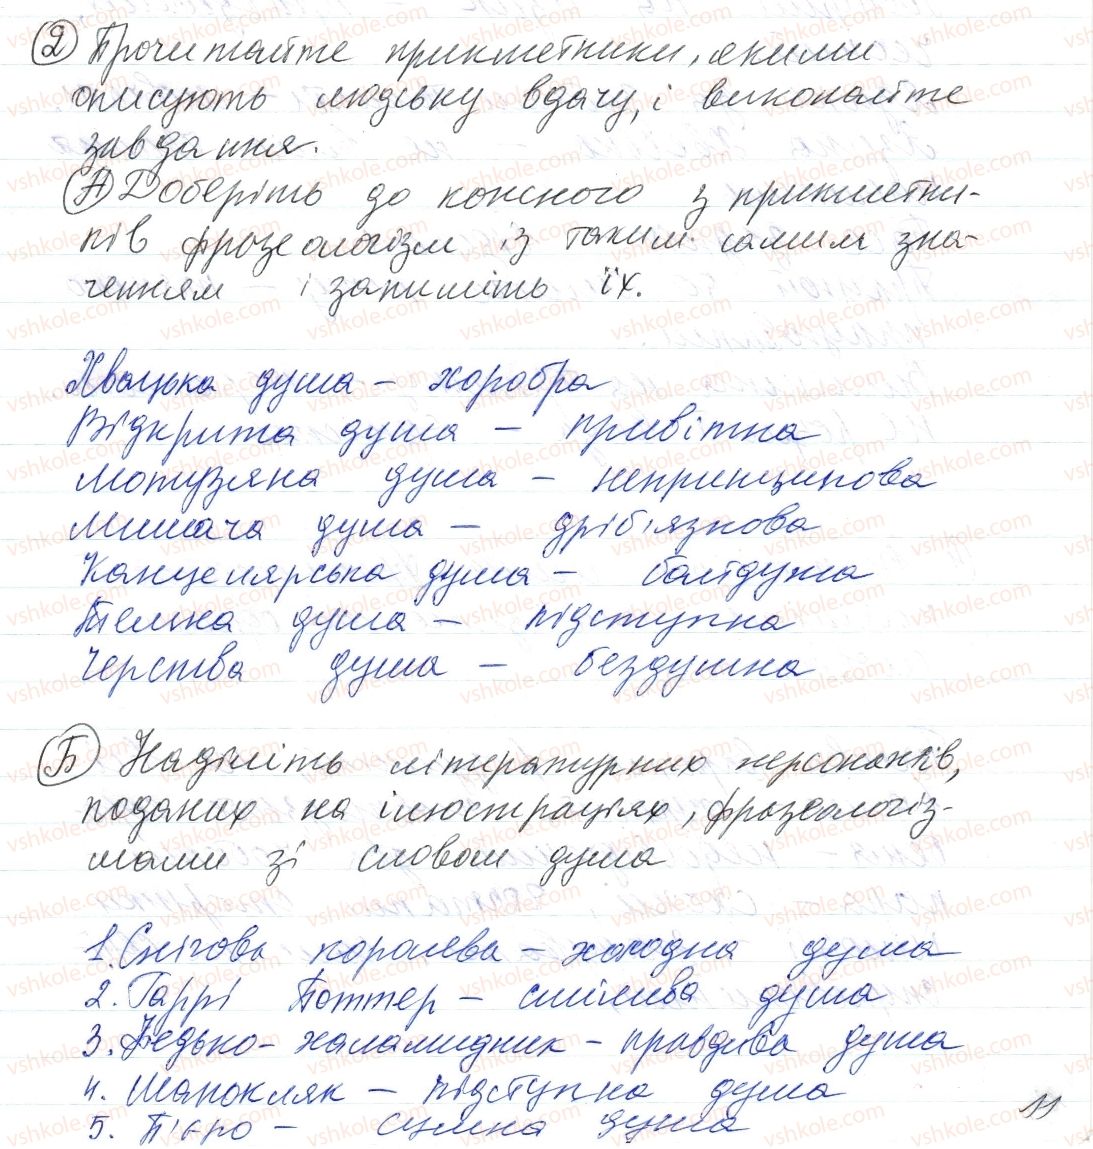 2 Прочитайте прикметники, якими
описують людську вдачу, і виконайте
завдання.
А Доберіть до кожного з прикметни-
ків фразеологізм із таким самим зна-
ченням і запишіть їх.
Хвацька душа – хоробра
Відкрита душа – привітна
Мотузяна душа – непринципова
Мишача душа – дріб'язкова
Канцелярська душа – байдужа
Темна душа – підступна
Черства душа – бездушна
Б Наділіть літературних персонажів,
поданих на ілюстраціях, фразеологіз-
мами зі словом душа
1. Снігова королева – холодна душа
2. Гаррі Поттер – смілива душа
3. Федько-халамидник – правдива душа
4. Шапокляк – підступна душа
5. П'єро – сумна душа
11